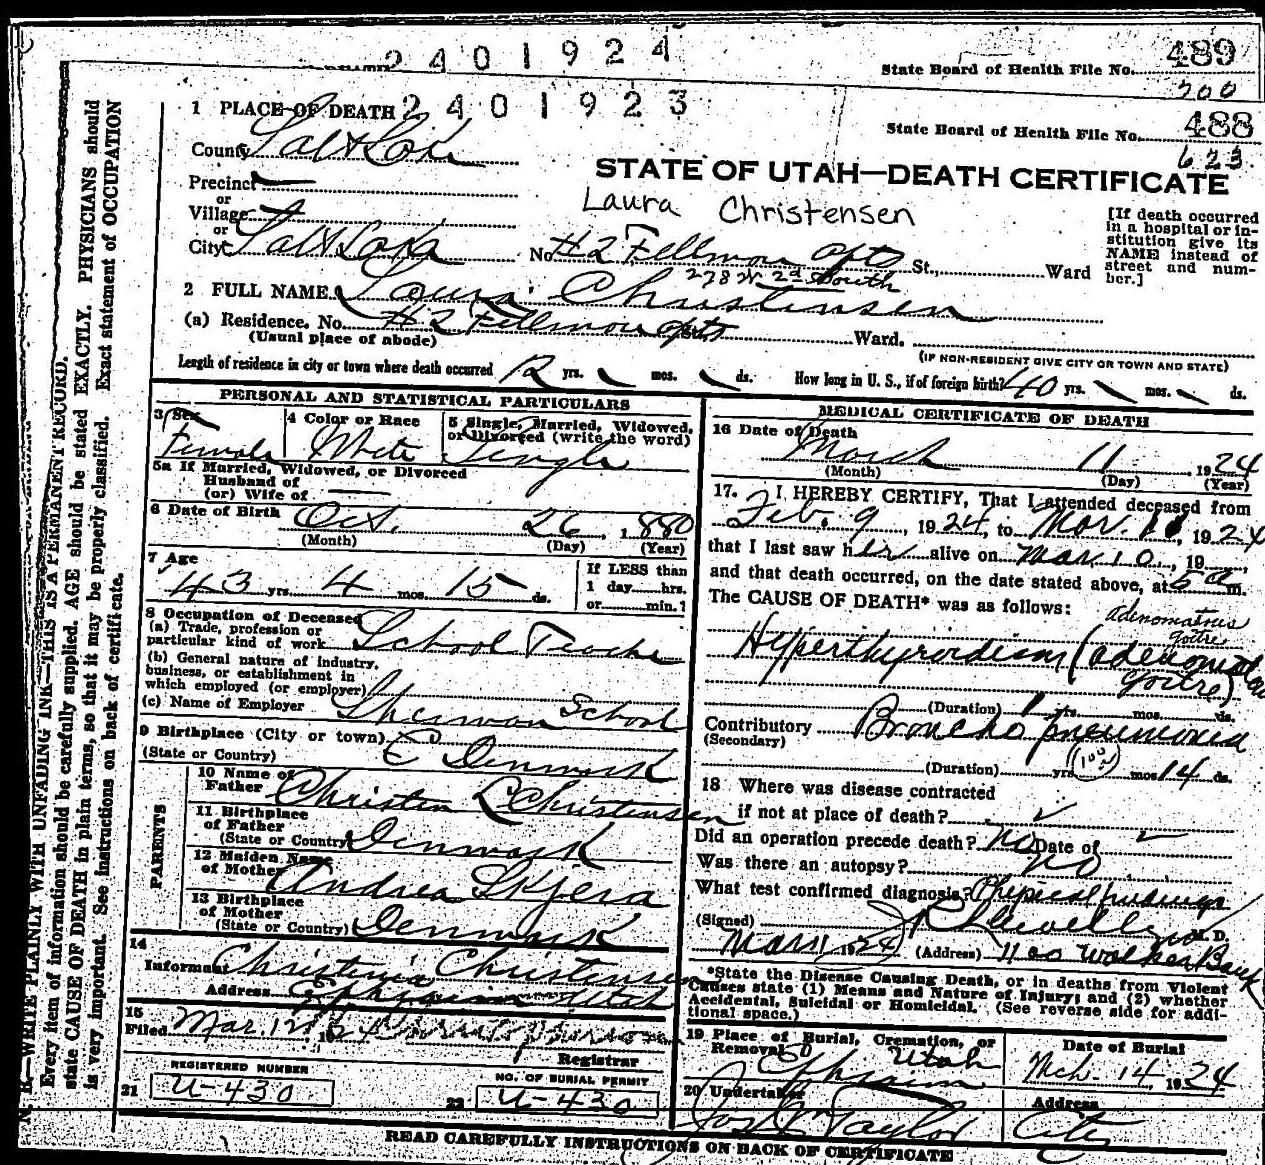 2401924
State Board of Health File No. 489
700
1 PLACE OF DEATH 2401923
State Board of Health File No. 488
623
County Salt Lake
STATE OF UTAH—DEATH CERTIFICATE
Precinct —
or
Village
or
City Salt Lake
Laura Christensen
No. #2 Fellmore apts St., Ward
278 W 2d South
[If death occurred in a hospital or institution give its NAME instead of street and number.]
2 FULL NAME Laura Christensen
(a) Residence. No. #2 Fellmore apts Ward.
(Usual place of abode)
(IF NON-RESIDENT GIVE CITY OR TOWN AND STATE)
Length of residence in city or town where death occurred 12 yrs. mos. ds. How long in U. S., if of foreign birth? 40 yrs. mos. ds.
PERSONAL AND STATISTICAL PARTICULARS
3 Sex Female
4 Color or Race White
5 Single, Married, Widowed, or Divorced (write the word) Single
5a If Married, Widowed, or Divorced
Husband of
(or) Wife of —
6 Date of Birth Oct. 26, 1880
(Month) (Day) (Year)
7 Age 43 yrs. 4 mos. 15 ds.
If LESS than
1 day....hrs.
or....min.?
8 Occupation of Deceased
(a) Trade, profession or particular kind of work School Teacher
(b) General nature of industry, business, or establishment in which employed (or employer)
(c) Name of Employer Sherman School
9 Birthplace (City or town)
(State or Country) Denmark
PARENTS
10 Name of Father Christen L Christensen
11 Birthplace of Father
(State or Country) Denmark
12 Maiden Name of Mother Andrea Skjera
13 Birthplace of Mother
(State or Country) Denmark
14
Informant Christenia Christensen
Address Ephraim Utah
15
Filed Mar. 12, 1924
Registrar
REGISTERED NUMBER
21 U-430
NO. OF BURIAL PERMIT
22 U-430
MEDICAL CERTIFICATE OF DEATH
16 Date of Death March 11, 1924
(Month) (Day) (Year)
17. I HEREBY CERTIFY, That I attended deceased from
Feb. 9, 1924, to Mar. 11, 1924
that I last saw her alive on Mar 10, 19
and that death occurred, on the date stated above, at 5 a m.
The CAUSE OF DEATH* was as follows:
adenomatous goitre
Hyperthyroidism (adenomatous
goitre)
(Duration) yrs. mos. ds.
Contributory Broncho pneumonia
(Secondary)
(Duration) yrs. mos. 14 ds.
18 Where was disease contracted
if not at place of death?
Did an operation precede death? No Date of
Was there an autopsy? no
What test confirmed diagnosis? Physical findings
(Signed) M. D.
Mar 11, 1924 (Address) 1100 Walker Bank
*State the Disease Causing Death, or in deaths from Violent Causes state (1) Means and Nature of Injury; and (2) whether Accidental, Suicidal or Homicidal. (See reverse side for additional space.)
19 Place of Burial, Cremation, or Removal
Ephraim Utah
Date of Burial
Mch. 14, 1924
20 Undertaker
Jos Wm Taylor
Address
City
READ CAREFULLY INSTRUCTIONS ON BACK OF CERTIFICATE
N. B.—WRITE PLAINLY WITH UNFADING INK—THIS IS A PERMANENT RECORD.
Every item of information should be carefully supplied. AGE should be stated EXACTLY. PHYSICIANS should
state CAUSE OF DEATH in plain terms, so that it may be properly classified. Exact statement of OCCUPATION
is very important. See instructions on back of certificate.